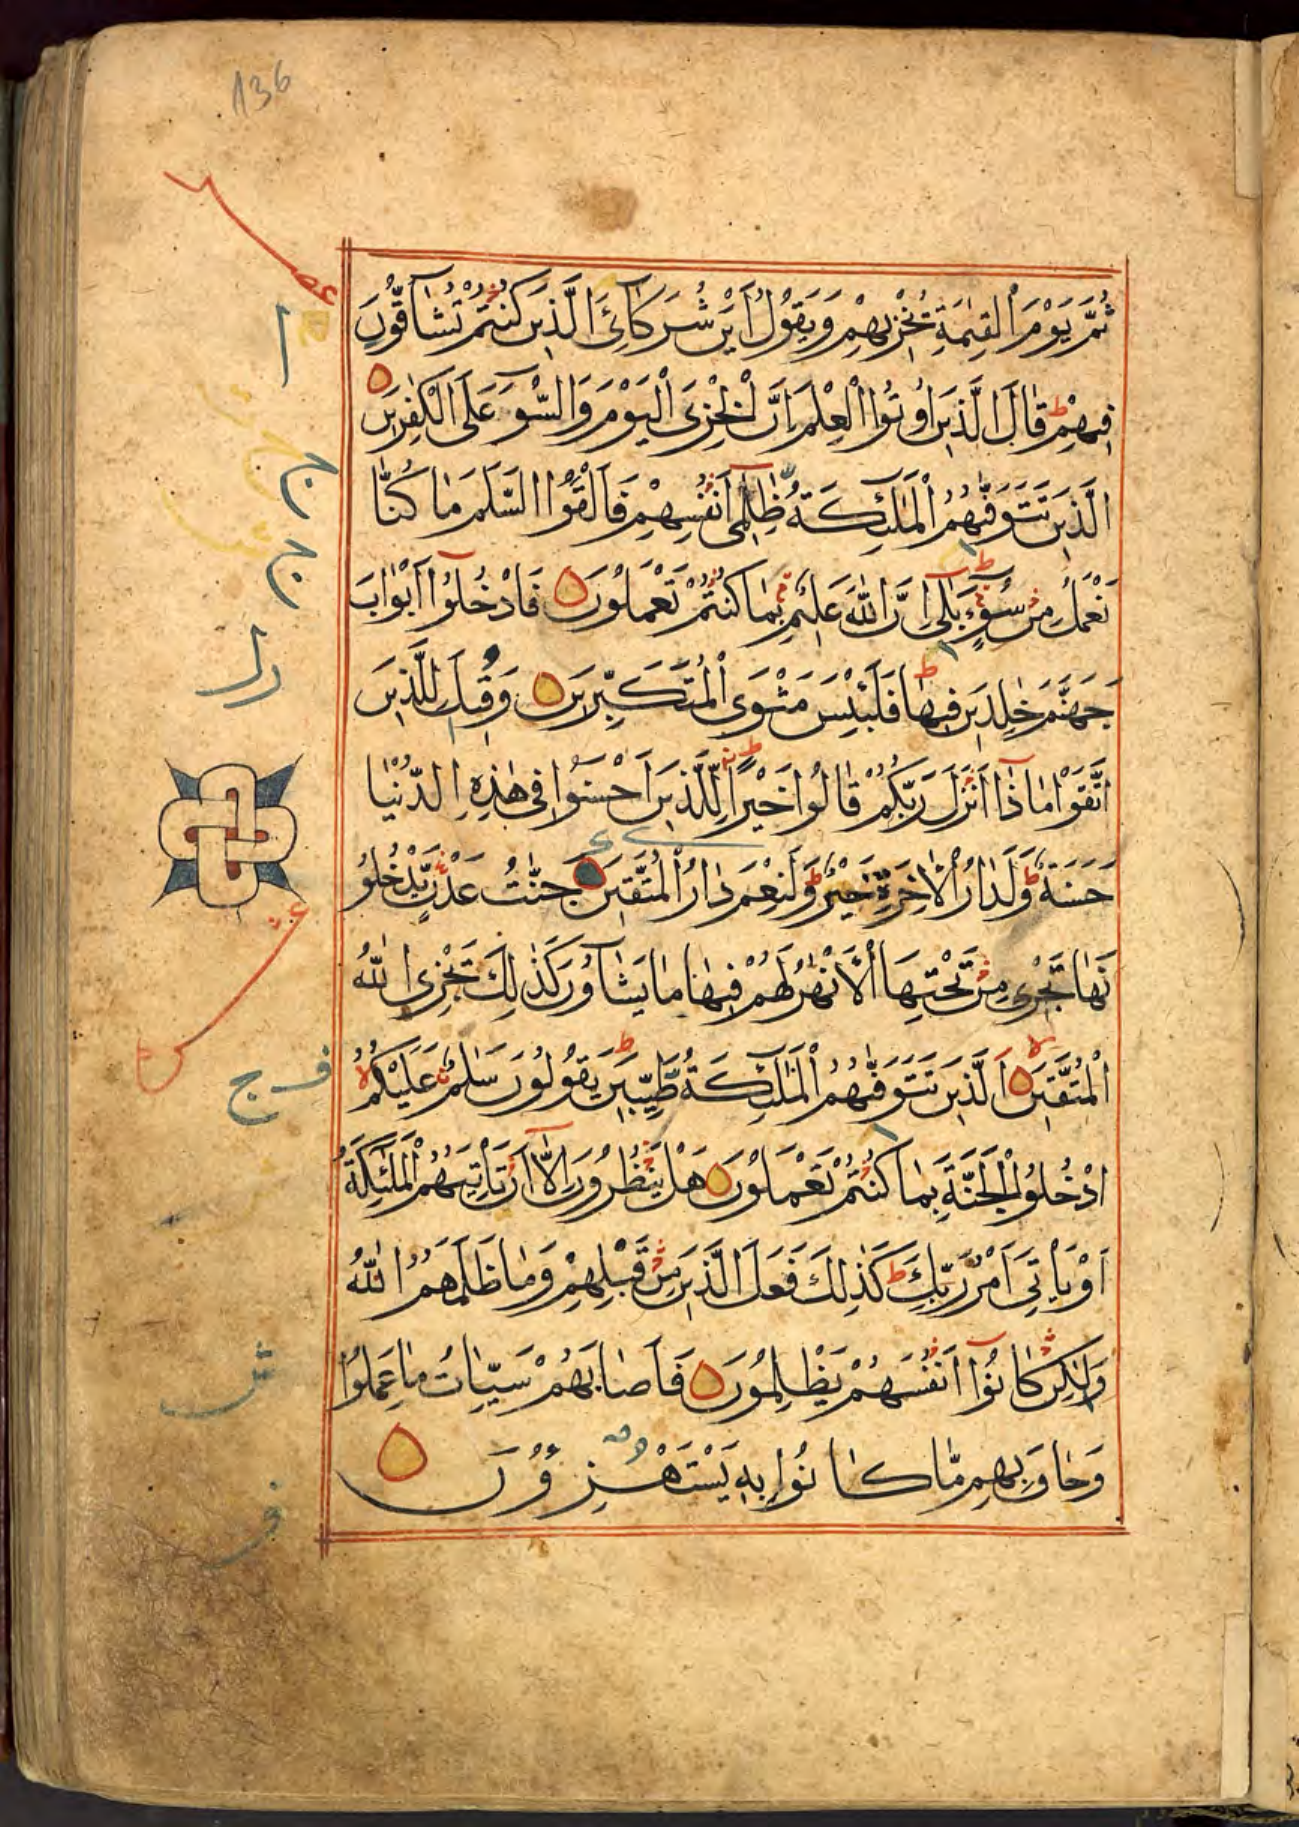 136
ثُمَّ يَوْمَ الْقِيٰمَةِ يُخْزِيهِمْ وَيَقُولُ اَيْنَ شُرَكَآئِىَ الَّذِينَ كُنْتُمْ تُشَآقُّونَ
فِيهِمْ ط قَالَ الَّذِينَ اُوتُوا الْعِلْمَ اِنَّ الْخِزْىَ الْيَوْمَ وَالسُّوٓءَ عَلَى الْكٰفِرِينَ
الَّذِينَ تَتَوَفّٰىهُمُ الْمَلٰٓئِكَةُ ظَالِمِىٓ اَنْفُسِهِمْ فَاَلْقَوُا السَّلَمَ مَا كُنَّا
نَعْمَلُ مِنْ سُوٓءٍ ط بَلٰٓى اِنَّ اللّٰهَ عَلِيمٌ بِمَا كُنْتُمْ تَعْمَلُونَ فَادْخُلُوٓا اَبْوَابَ
جَهَنَّمَ خٰلِدِينَ فِيهَا ط فَلَبِئْسَ مَثْوَى الْمُتَكَبِّرِينَ وَقِيلَ لِلَّذِينَ
اتَّقَوْا مَاذَآ اَنْزَلَ رَبُّكُمْ قَالُوا خَيْرًا ط لِلَّذِينَ اَحْسَنُوا فِى هٰذِهِ الدُّنْيَا
حَسَنَةٌ ط وَلَدَارُ الْاٰخِرَةِ خَيْرٌ ط وَلَنِعْمَ دَارُ الْمُتَّقِينَ جَنّٰتُ عَدْنٍ يَدْخُلُو
نَهَا تَجْرِى مِنْ تَحْتِهَا الْاَنْهٰرُ لَهُمْ فِيهَا مَا يَشَآؤُنَ كَذٰلِكَ يَجْزِى اللّٰهُ
الْمُتَّقِينَ لا اَلَّذِينَ تَتَوَفّٰىهُمُ الْمَلٰٓئِكَةُ طَيِّبِينَ ط يَقُولُونَ سَلٰمٌ عَلَيْكُمْ لا
ادْخُلُوا الْجَنَّةَ بِمَا كُنْتُمْ تَعْمَلُونَ هَلْ يَنْظُرُونَ اِلَّآ اَنْ تَاْتِيَهُمُ الْمَلٰٓئِكَةُ
اَوْ يَاْتِىَ اَمْرُ رَبِّكَ ط كَذٰلِكَ فَعَلَ الَّذِينَ مِنْ قَبْلِهِمْ وَمَا ظَلَمَهُمُ اللّٰهُ
وَلٰكِنْ كَانُوٓا اَنْفُسَهُمْ يَظْلِمُونَ فَاَصَابَهُمْ سَيِّاٰتُ مَا عَمِلُوا
وَحَاقَ بِهِمْ مَّا كَانُوا بِهِ يَسْتَهْزِؤُنَ